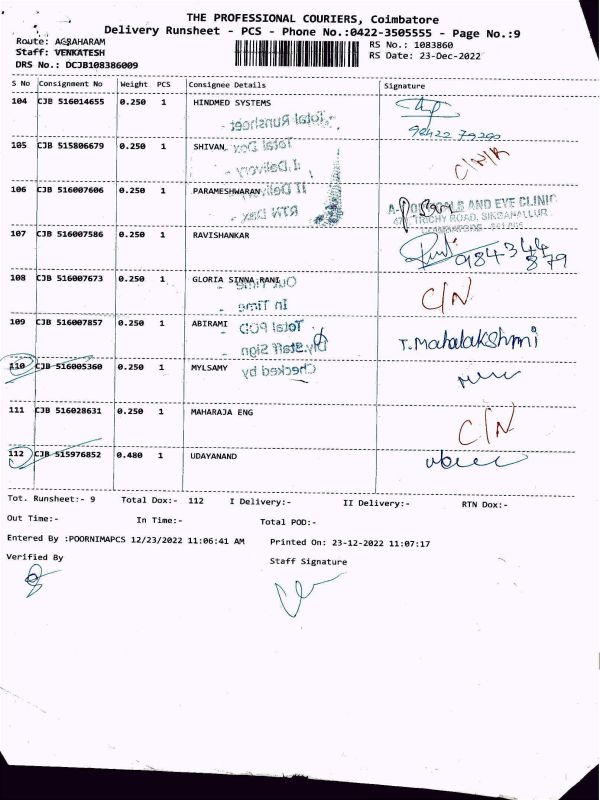 THE PROFESSIONAL COURIERS, Coimbatore
Delivery Runsheet - PCS - Phone No.:0422-3505555 - Page No.:9
Route: AGRAHARAM
RS No.: 1083860
Staff: VENKATESH
RS Date: 23-Dec-2022
DRS No.: DCJB108386009
S No Consignment No Weight PCS Consignee Details Signature
104 CJB 516014655 0.250 1 HINDMED SYSTEMS
Total Runsheet -
105 CJB 515806679 0.250 1 SHIVAN Total Dox - C/N/R
I. Delivery -
106 CJB 516007606 0.250 1 PARAMESHWARAN II Delivery -
RTN Dox -
AND EYE CLINIC
TRICHY ROAD, SINGANALLUR
107 CJB 516007586 0.250 1 RAVISHANKAR
984344
879
108 CJB 516007673 0.250 1 GLORIA SINNA RANI Out Time - C/N
In Time -
109 CJB 516007857 0.250 1 ABIRAMI Total POD - T. Mahalakshmi
Dly. Staff Sign -
110 CJB 516005360 0.250 1 MYLSAMY Checked by
111 CJB 516028631 0.250 1 MAHARAJA ENG C/N
112 CJB 515976852 0.480 1 UDAYANAND
Tot. Runsheet:- 9 Total Dox:- 112 I Delivery:- II Delivery:- RTN Dox:-
Out Time:- In Time:- Total POD:-
Entered By :POORNIMAPCS 12/23/2022 11:06:41 AM Printed On: 23-12-2022 11:07:17
Verified By Staff Signature